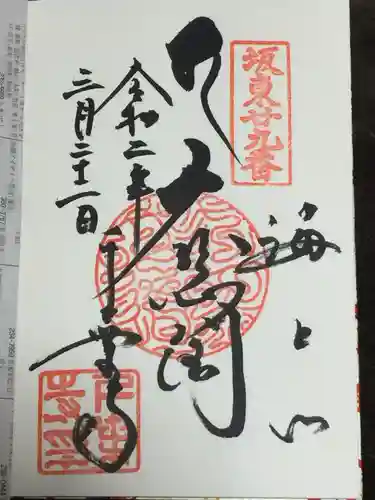 坂東廿九番
海上山
大悲閣
千葉寺
令和二年
三月二十一日